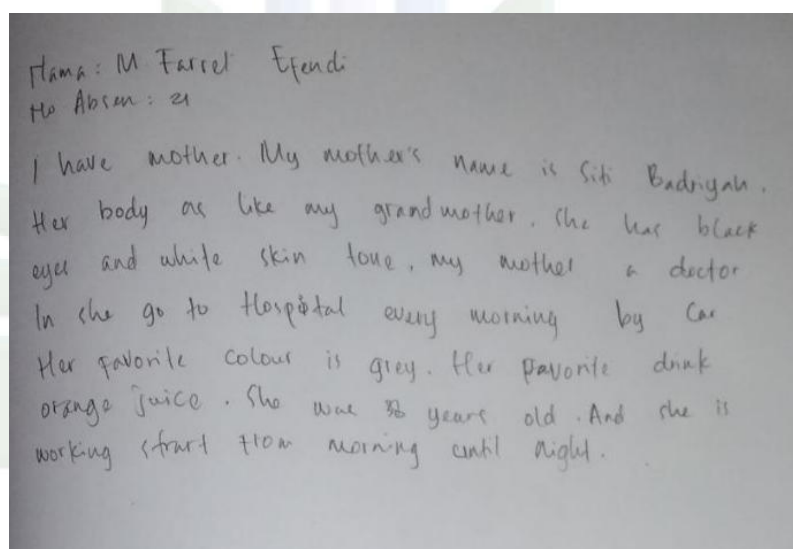 Nama : M Farrel Efendi
No Absen : 21
I have mother. My mother's name is Siti Badriyah.
Her body as like my grandmother. She has black
eyes and white skin tone, my mother a doctor
In she go to Hospital every morning by Car
Her favorite colour is grey. Her favorite drink
orange juice. She was 38 years old. And she is
working strart from morning until night.